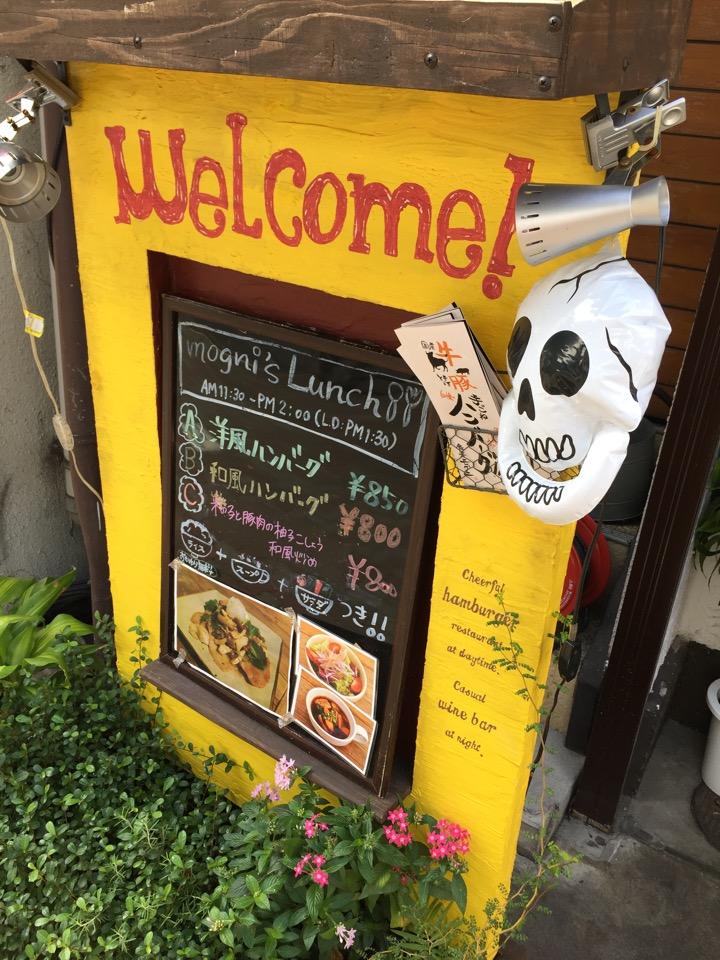 Welcome!
mogni's Lunch
AM11:30 - PM2:00 (L.O: PM1:30)
A 洋風ハンバーグ ¥850
B 和風ハンバーグ ¥800
C
と豚肉の柚子こしょう
和風炒め ¥800
ライス + スープ + サラダ つき!!
牛
豚
ハンバーグ
Cheerful
hamburger
restaurant
at daytime.
Casual
wine bar
at night.